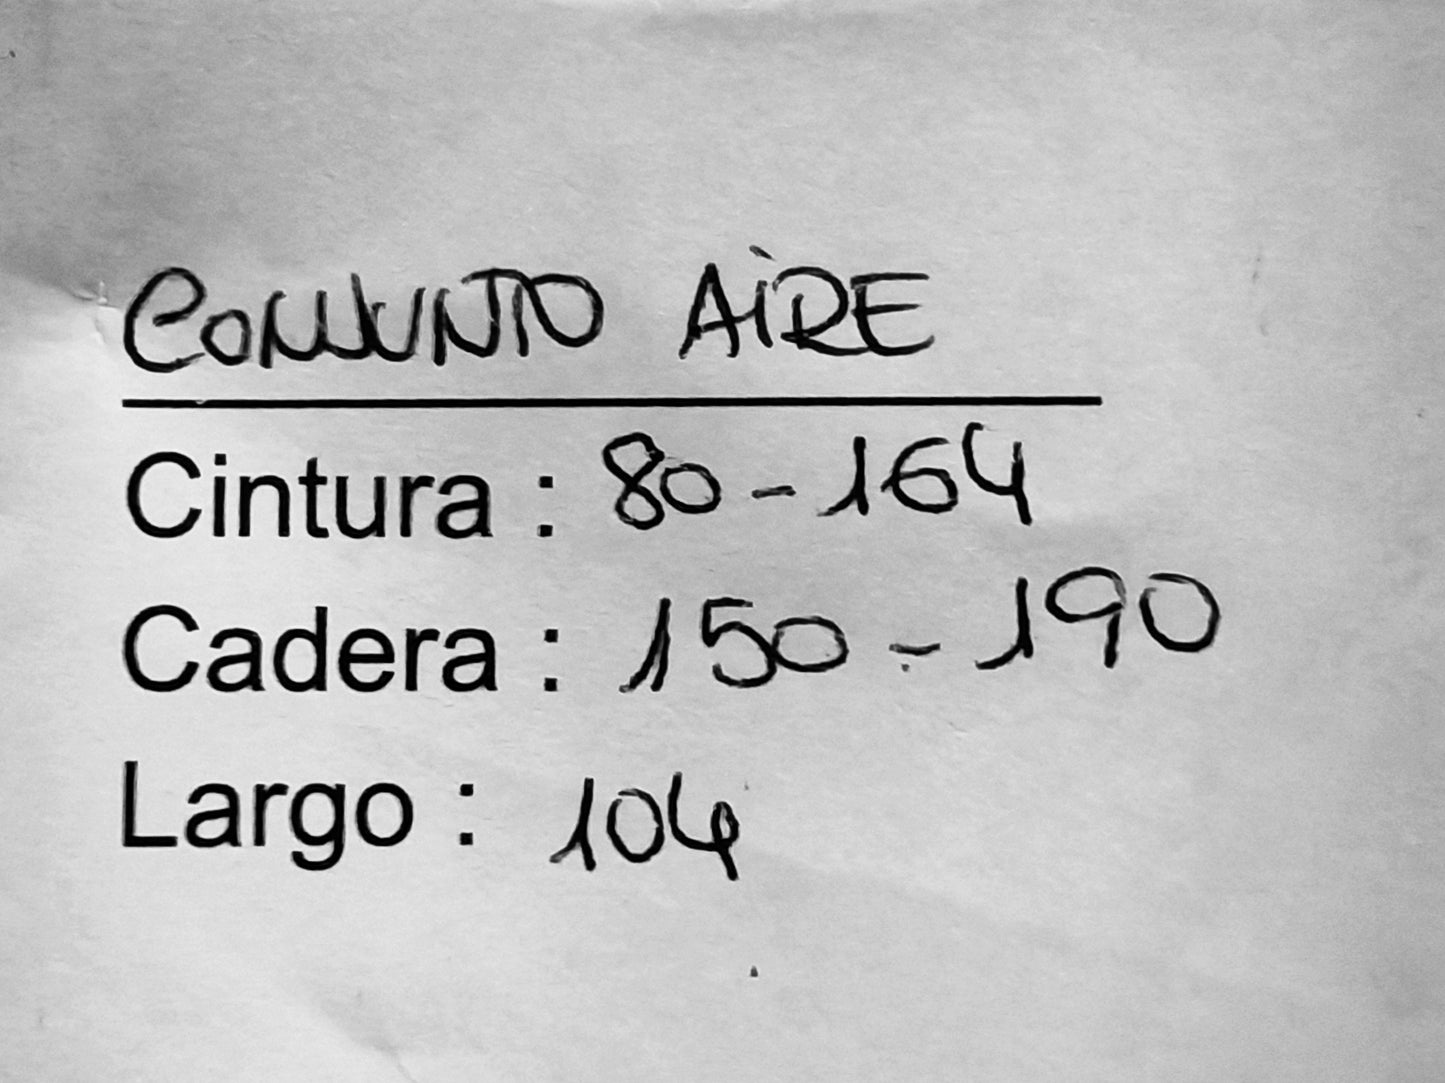 CONJUNTO AiRE
Cintura : 80 - 164
Cadera : 150 - 190
Largo : 104